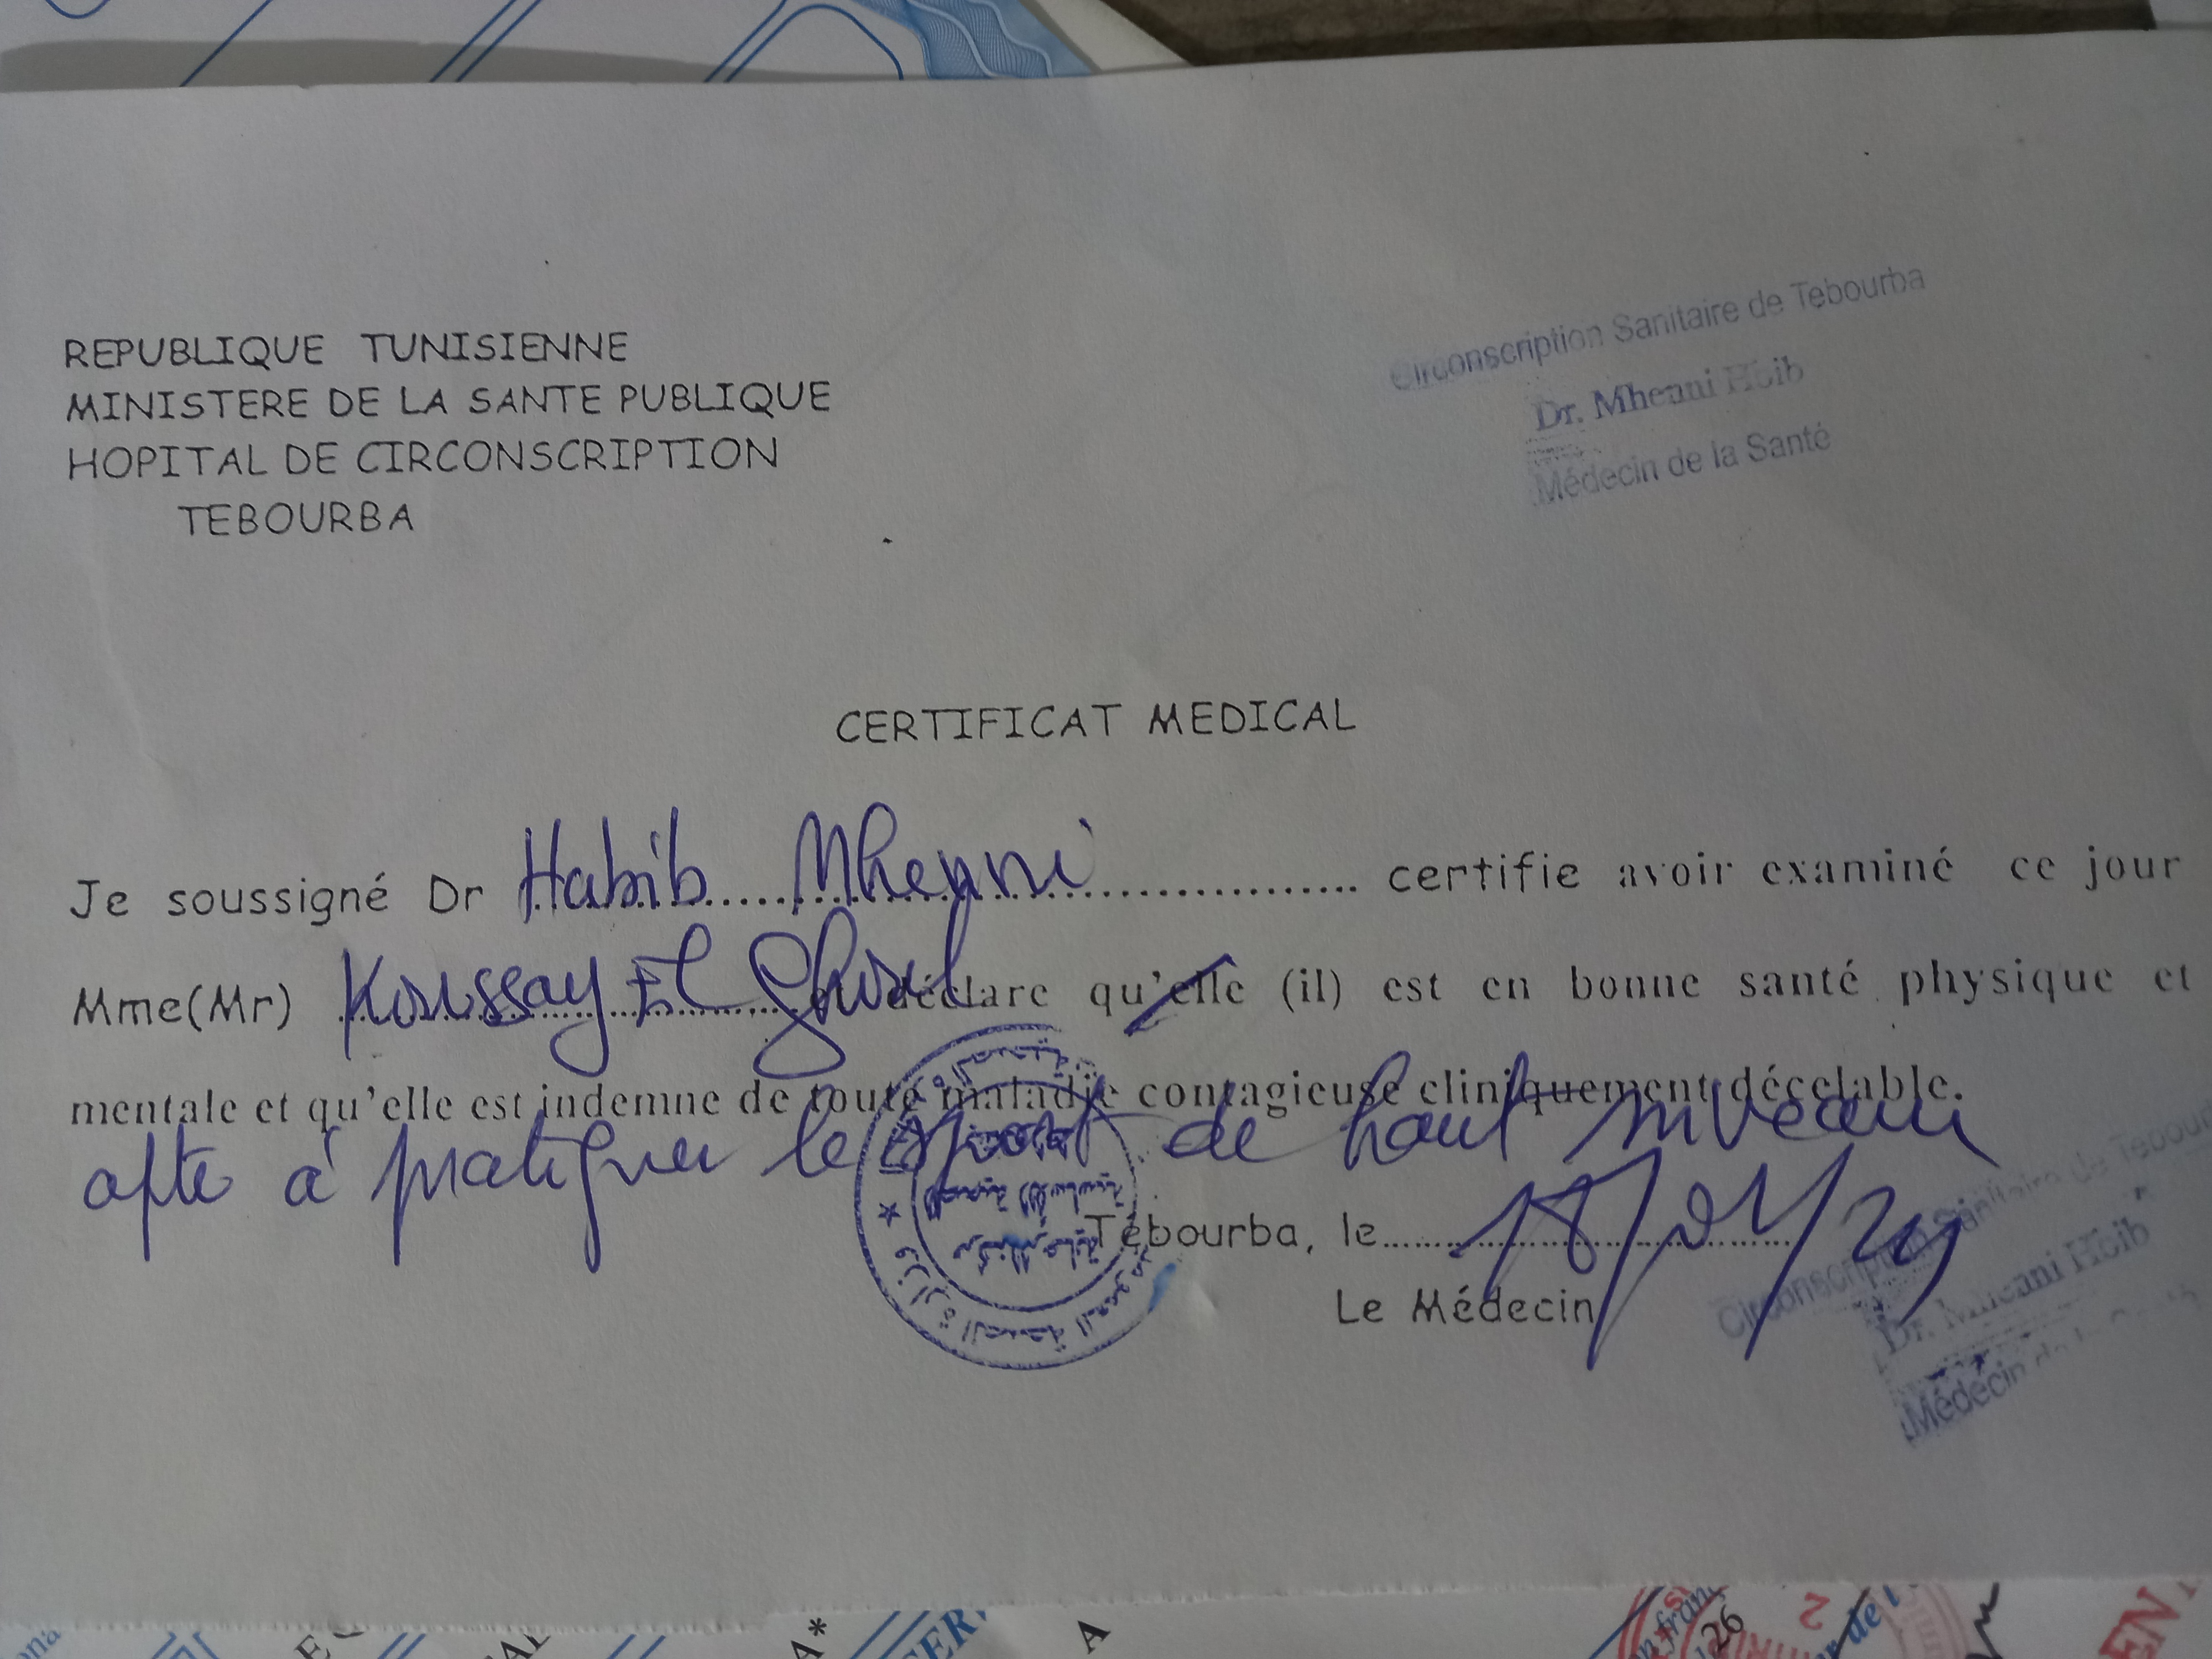 REPUBLIQUE TUNISIENNE
MINISTERE DE LA SANTE PUBLIQUE
HOPITAL DE CIRCONSCRIPTION
TEBOURBA
Circonscription Sanitaire de Tebourba
Dr. Mheani Hbib
Médecin de la Santé
CERTIFICAT MEDICAL
Je soussigné Dr Habib Mhenni certifie avoir examiné ce jour
Mme(Mr) Koussay El déclare qu'elle (il) est en bonne santé physique et
mentale et qu'elle est indemne de toute maladie contagieuse cliniquement décelable.
apte à pratiquer le sport de haut niveau
Tebourba, le
Le Médecin
Circonscription Sanitaire de Tebour
Dr. Mheani Hbib
Médecin de la
26
A*
A